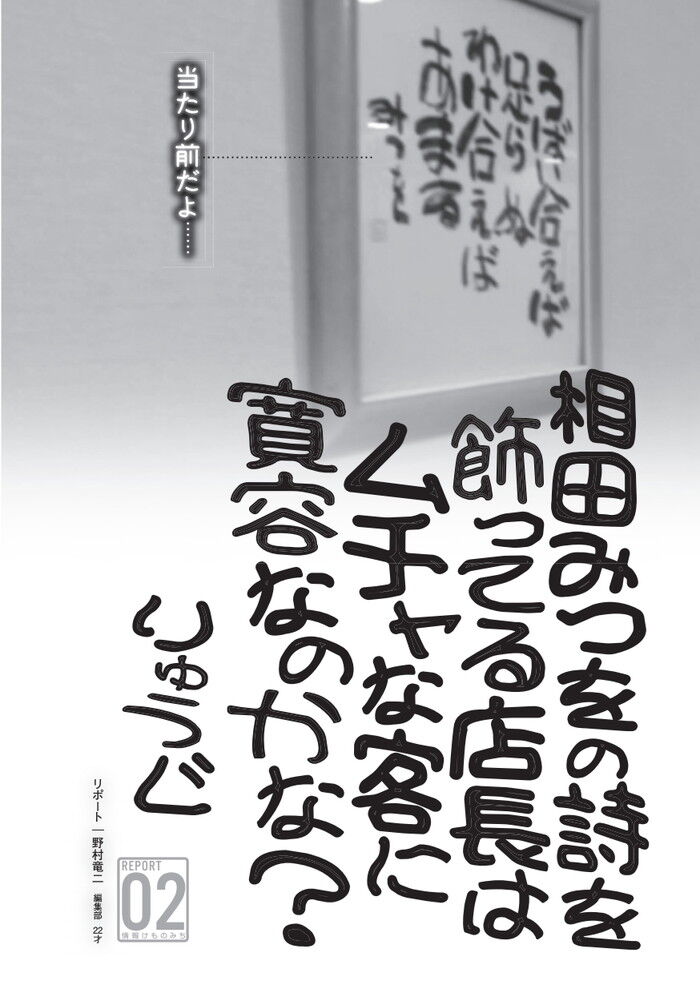 うばい合えば
足らぬ
わけ合えば
あまる
みつを
当たり前だよ……
相田みつをの詩を
飾ってる店長は
ムチャな客に
寛容なのかな?
りゅうじ
リポート｜野村竜二 編集部 22才
REPORT
02
情報けものみち